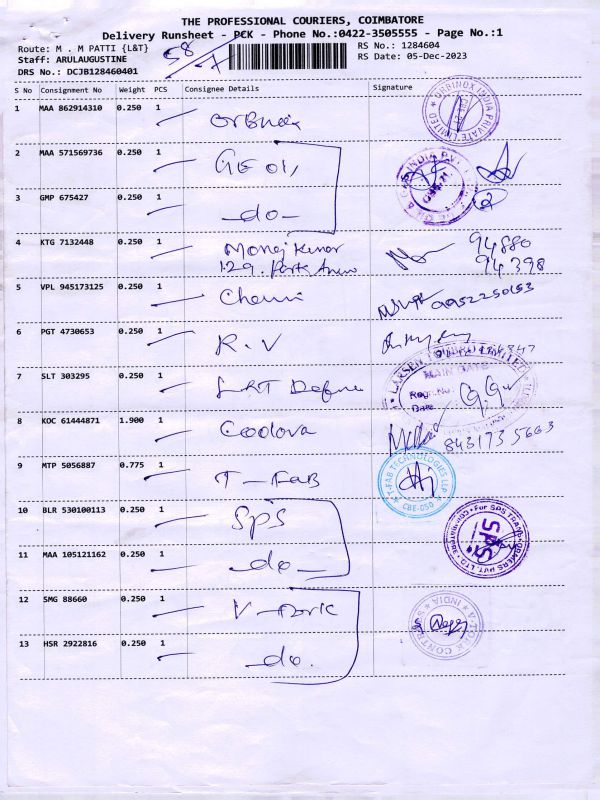 THE PROFESSIONAL COURIERS, COIMBATORE
Delivery Runsheet - PCK - Phone No.:0422-3505555 - Page No.:1
Route: M . M PATTI {L&T} 58/7 RS No.: 1284604
Staff: ARULAUGUSTINE RS Date: 05-Dec-2023
DRS No.: DCJB128460401
S No Consignment No Weight PCS Consignee Details Signature
1 MAA 862914310 0.250 1 ORBINOX INDIA PRIVATE LIMITED
2 MAA 571569736 0.250 1 GE OIL
3 GMP 675427 0.250 1 -do-
4 KTG 7132448 0.250 1 Manoj Kumar 94880
129, 94398
5 VPL 945173125 0.250 1
6 PGT 4730653 0.250 1 R.V
7 SLT 303295 0.250 1 LARSEN TOUBRO LIMITED
MAIN GATE
Regn.No:
Date
8 KOC 61444871 1.900 1 Codova
9 MTP 5056887 0.775 1 T-FAB T-FAB TECHNOLOGIES LLP
CBE-050
10 BLR 530100113 0.250 1 SPS SPS
11 MAA 105121162 0.250 1 -do-
12 SMG 88660 0.250 1 INDIA
13 HSR 2922816 0.250 1 -do.